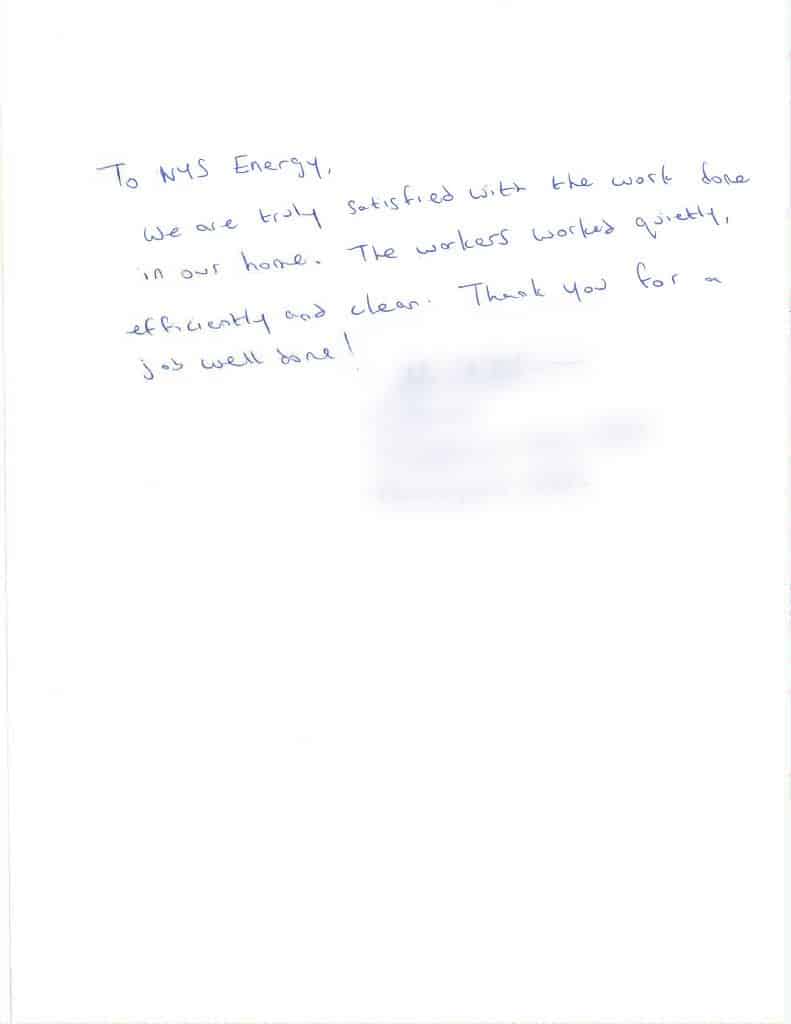 To NYS Energy,
We are truly satisfied with the work done
in our home. The workers worked quietly,
efficiently and clean. Thank you for a
job well done!